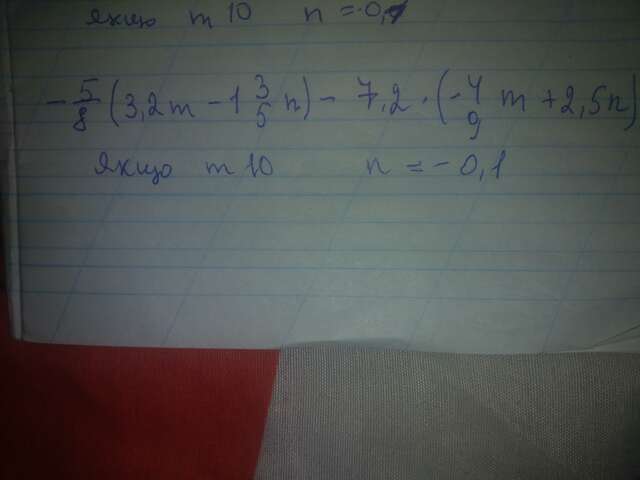 якщо m 10 n = -0,1
-5/8 (3,2m - 1 3/5 n) - 7,2 · (-4/9 m + 2,5n)
якщо m 10 n = -0,1